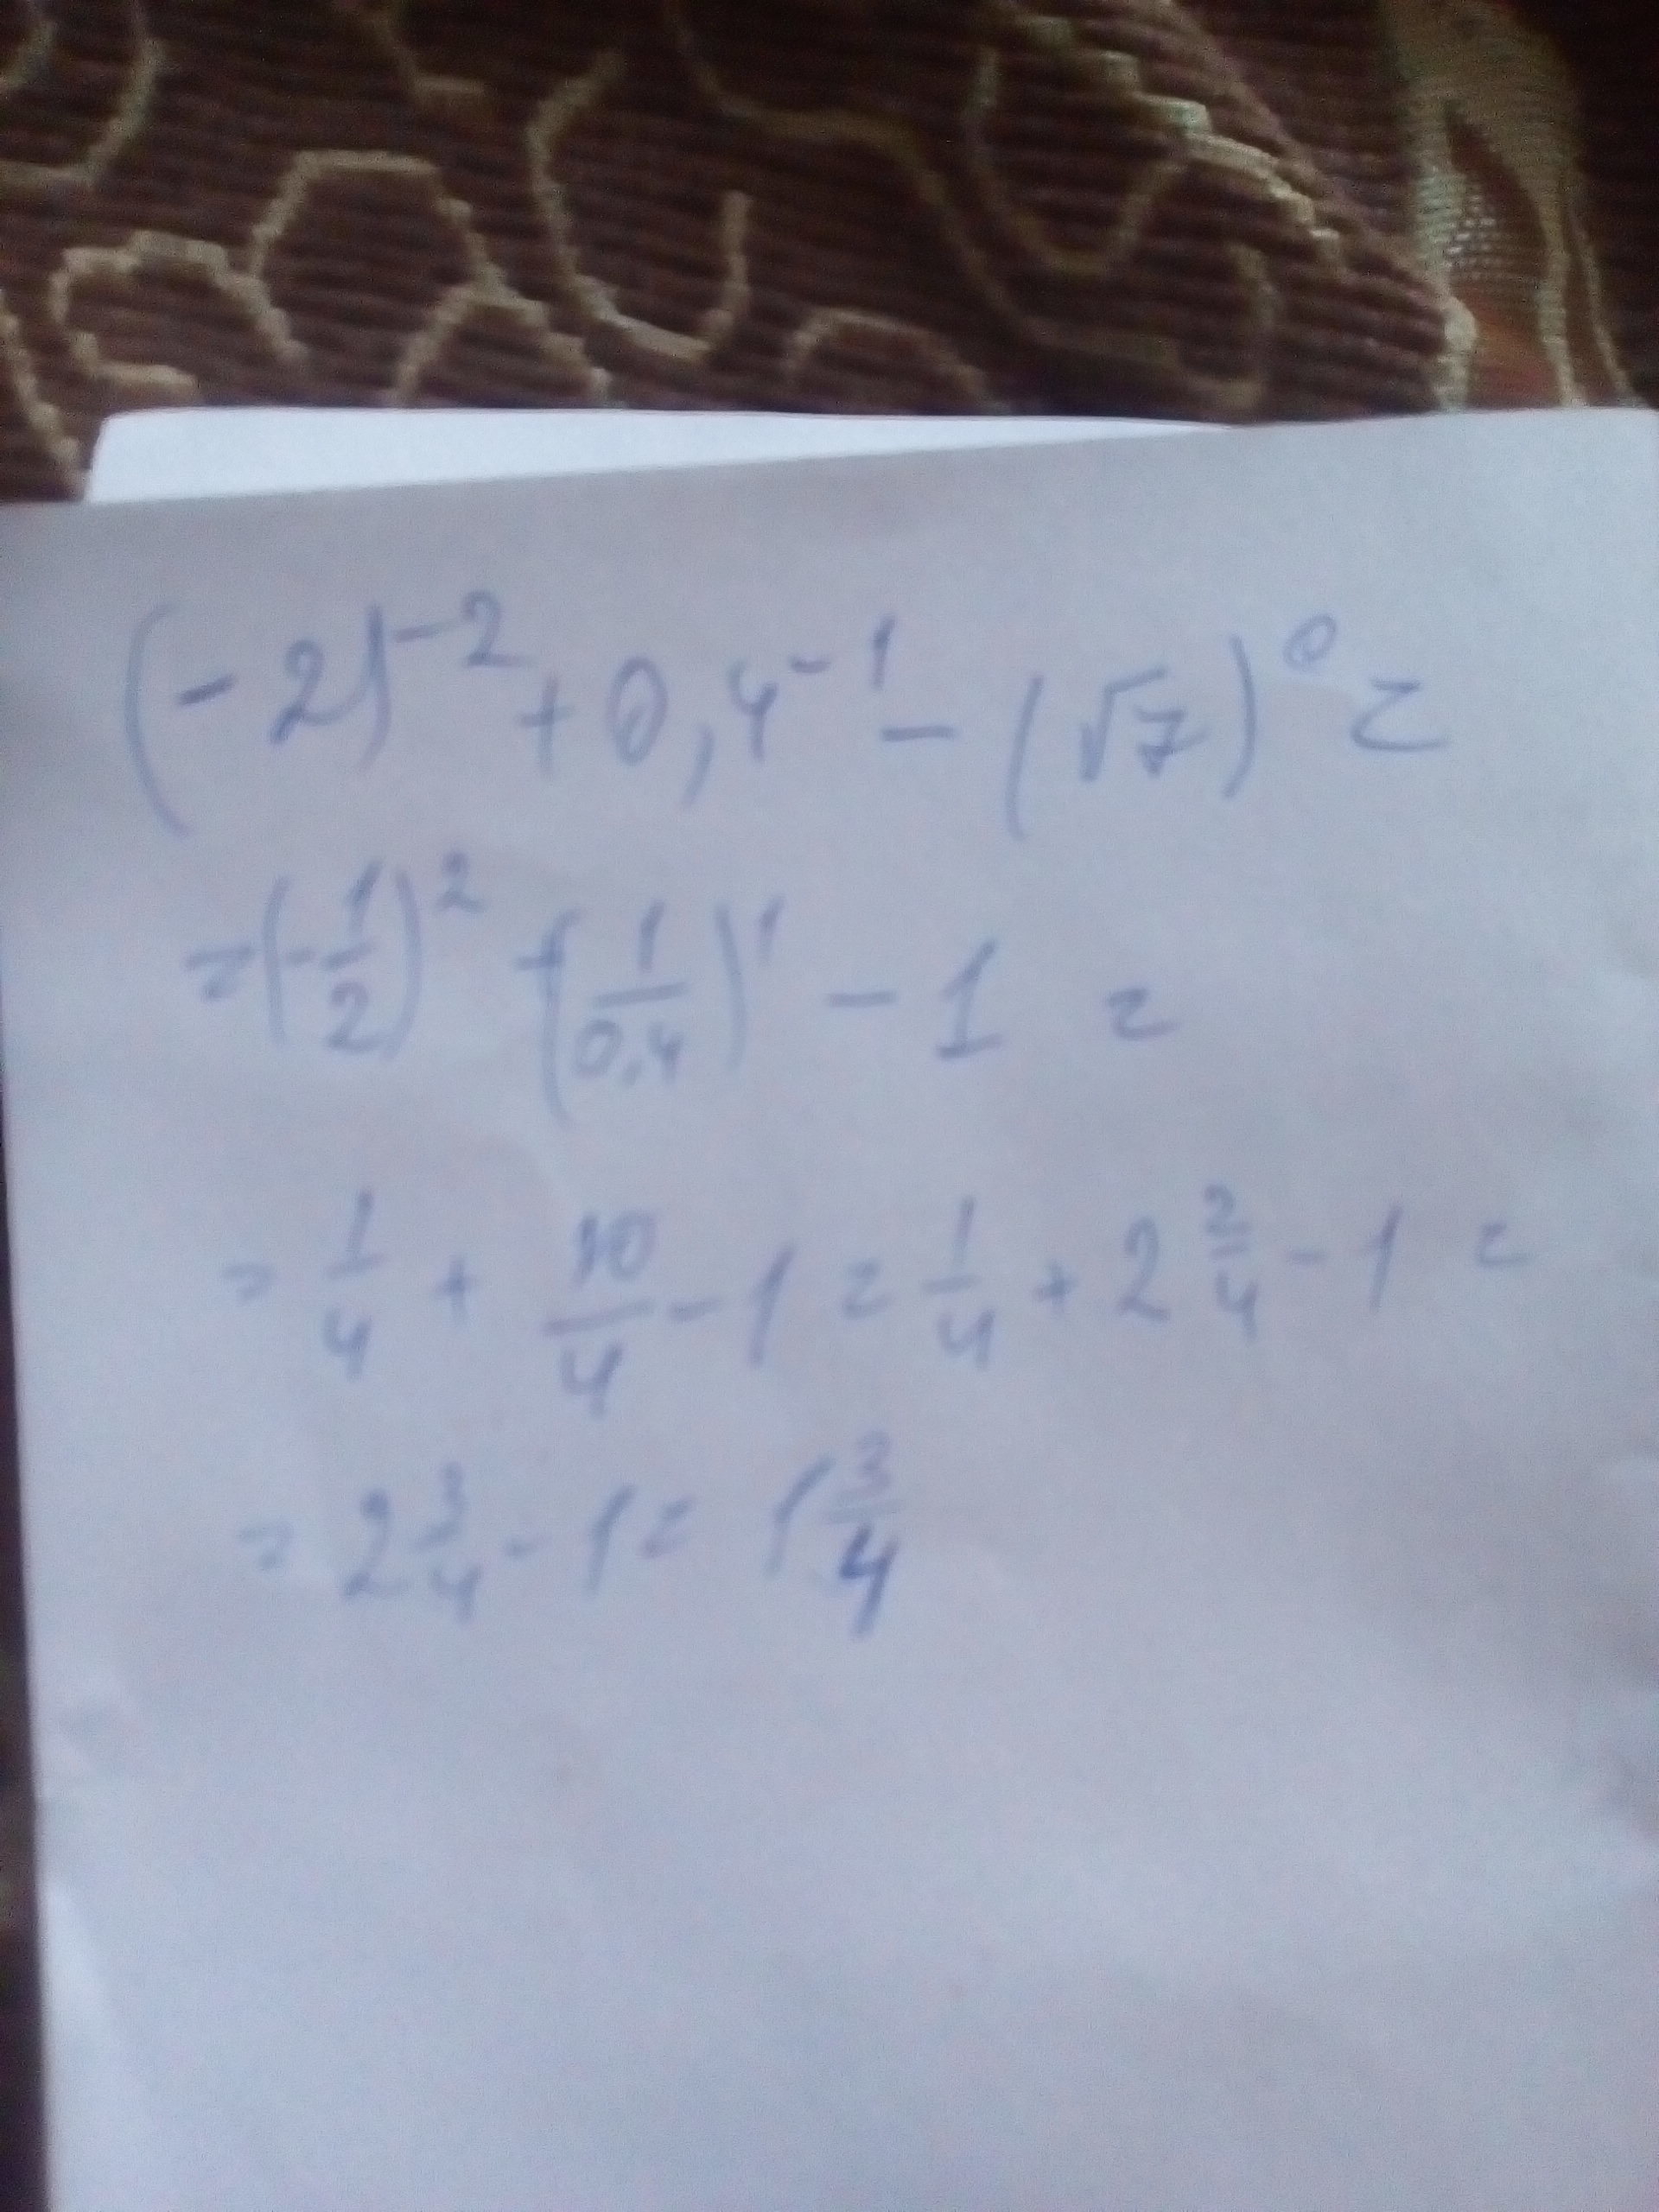 (-2)⁻² + 0,4⁻¹ - (√7)⁰ =
= (-1/2)² + (1/0,4)¹ - 1 =
= 1/4 + 10/4 - 1 = 1/4 + 2 2/4 - 1 =
= 2 3/4 - 1 = 1 3/4